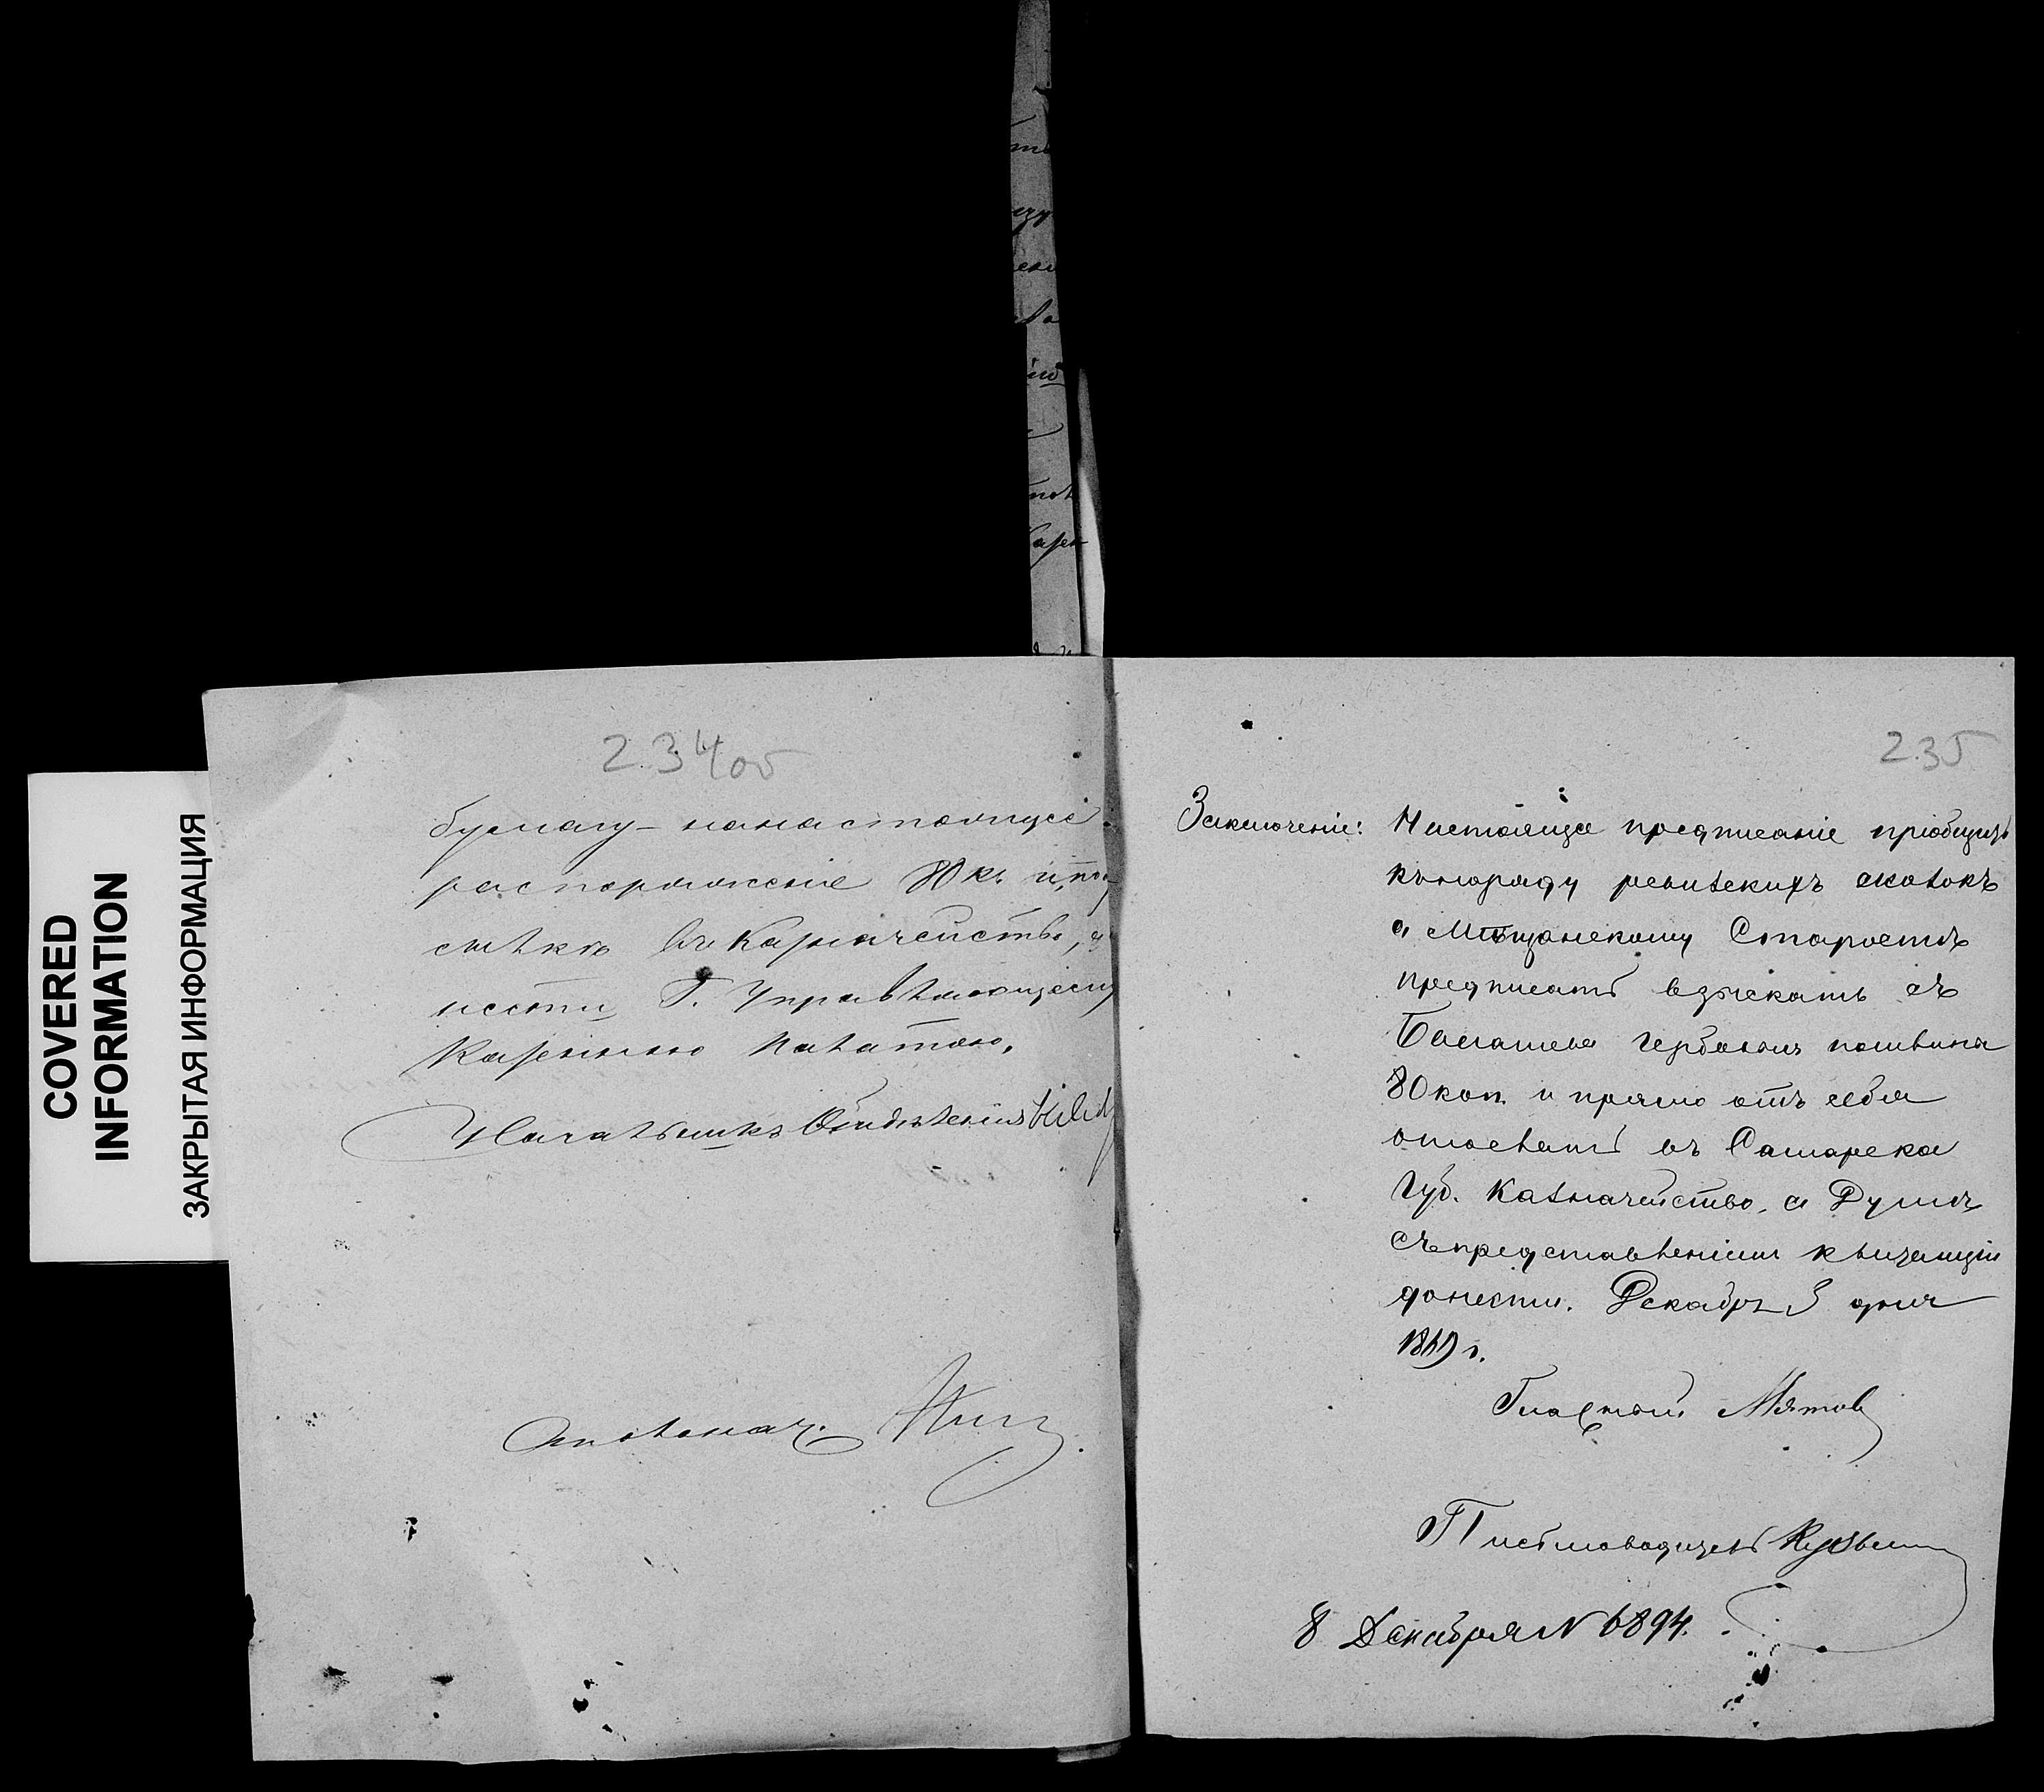 COVERED
INFORMATION
ЗАКРЫТАЯ ИНФОРМАЦИЯ
234об
бумагу – нанастоящее
распоряженіе 80 к. и, по
сылкѣ въ Казначейство,
нести Г. Управляющему
Казенною Палатою.
Начальникъ Отдѣленія
Столонач.
235
Заключеніе: Настоящее предписаніе пріобщить
къ наряду ревизскихъ сказокъ
а Мѣщанскому Старостѣ
предписать взыскать съ
гербовыхъ пошлинъ
80 коп. и прямо отъ себя
отослать въ Самарское
Губ. Казначейство, а Думѣ
съ представленіемъ квитанціи
донести. Декабря 3 дня
1869 г.
Гласный Мятов
Письмоводитель Кузьмин
8 Декабря N 6894.